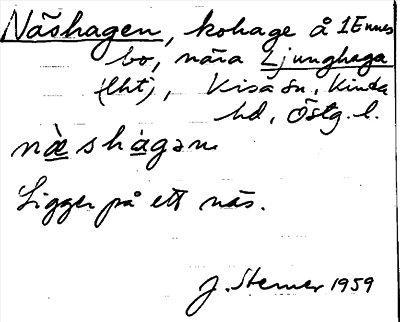 Näshagen, kohage å 1 Ennes
bo, nära Ljunghaga
(lht), Kisa sn, Kinda
hd, Östg. l.
næ̀shagən
Ligger på ett näs.
J. Sterner 1959